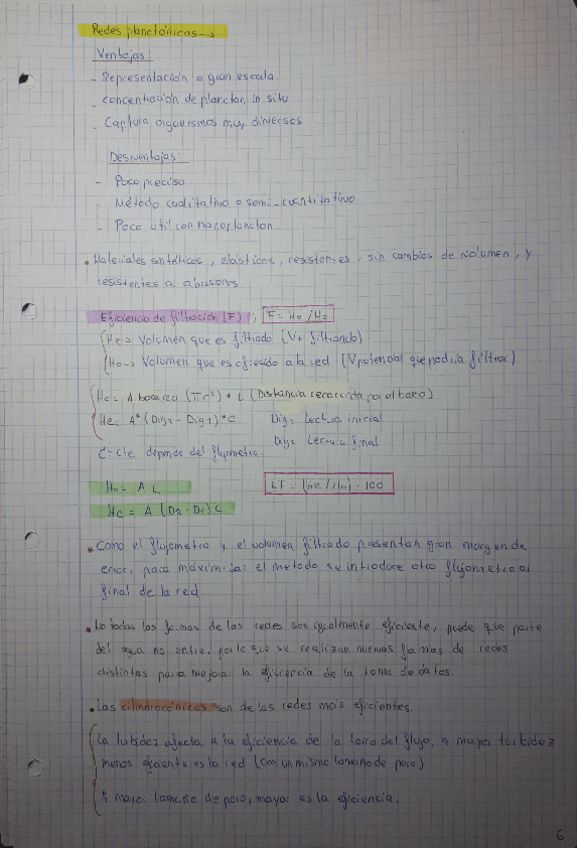 Redes planctónicas →
Ventajas:
- Representación a gran escala.
- concentración de plancton in situ
- Captura organismos muy diversos
Desventajas:
- Poco preciso
- Método cualitativo o semi-cuantitativo
- Poco útil con nanoplancton.
• Materiales sintéticos, elásticos, resistentes, sin cambios de volumen, y
resistentes a abrasiones
Eficiencia de filtración (F): F = He/Ho
He → Volumen que es filtrado (V+ filtrando)
Ho → Volumen que es ofrecido a la red (V potencial que podría filtrar)
Ho = A boca red (πr²) * L (Distancia recorrida por el barco)
He = A * (Dig2 - Dig1) * C. Dig1 Lectura inicial
C = cte. depende del flujometro. Dig2 Lectura final
Ho = A L
He = A (D2 - D1) C
EF = (He/Ho) · 100
• Como el flujometro y el volumen filtrado presentan gran margen de
error, para maximizar el metodo se introduce otro flujometro al
final de la red.
• No todas las formas de las redes son igualmente eficiente, puede que parte
del agua no entre, por lo que se realizan nuevas formas de redes
distintas para mejorar la eficiencia de la toma de datos.
• Las cilindrocónicas son de las redes más eficientes.
La tubidez afecta a la eficiencia de la toma del flujo, a mayor turbidez
menos eficiente es la red (con un mismo tamaño de poro)
A mayor tamaño de poro, mayor es la eficiencia.
6